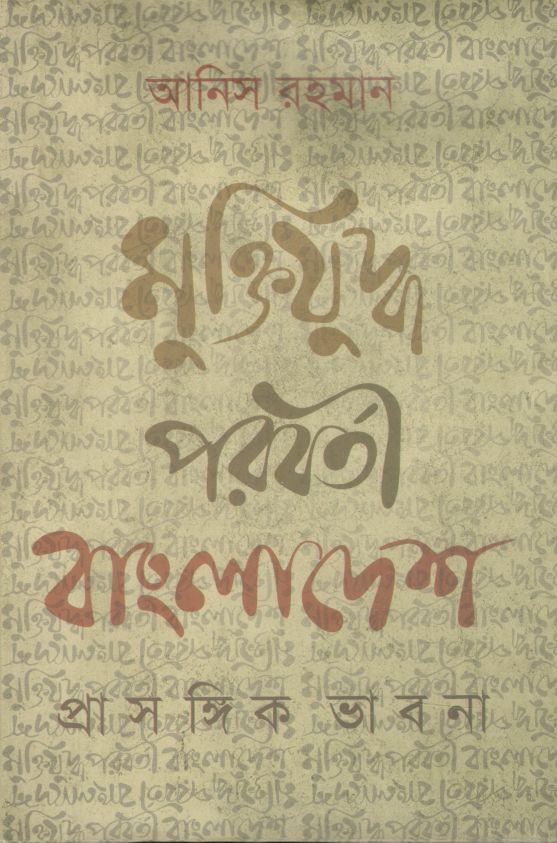 আনিস রহমান
মুক্তিযুদ্ধ
পরবর্তী
বাংলাদেশ
প্রাসঙ্গিক ভাবনা